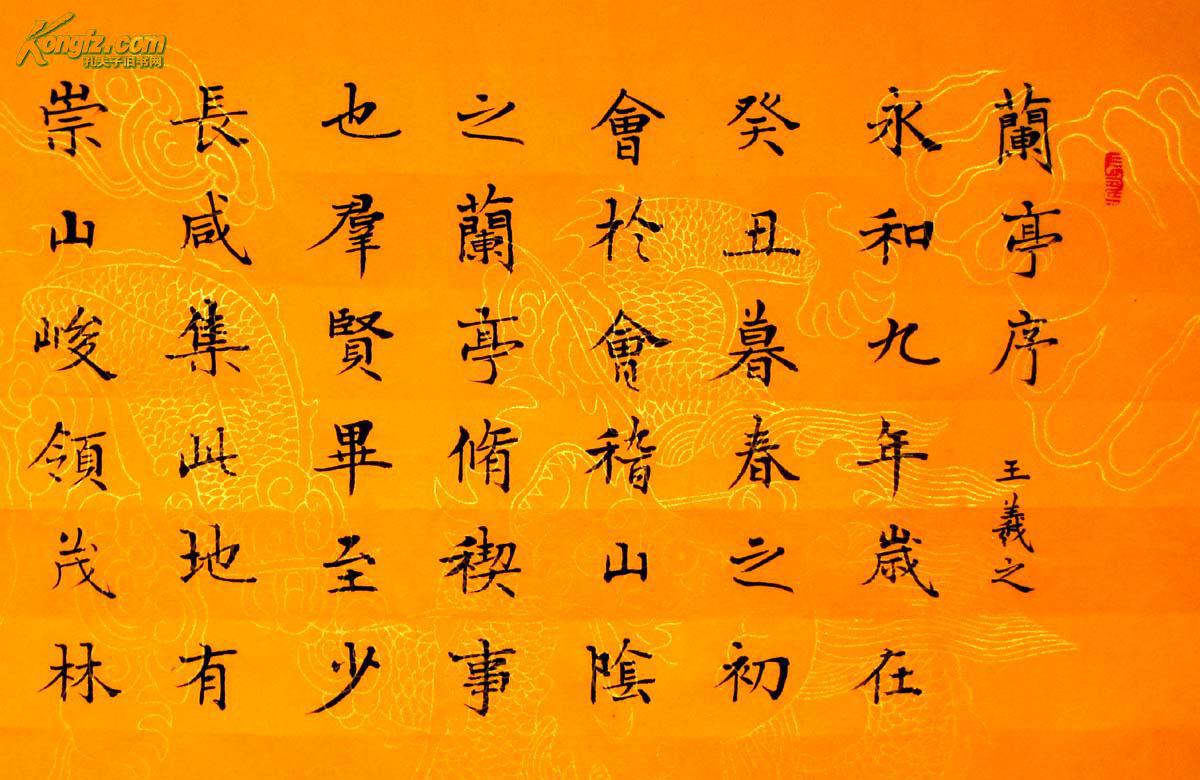 蘭亭序 王羲之
永和九年歲在
癸丑暮春之初
會於會稽山陰
之蘭亭脩稧事
也羣賢畢至少
長咸集此地有
崇山峻領茂林
Kongfz.com
孔夫子旧书网